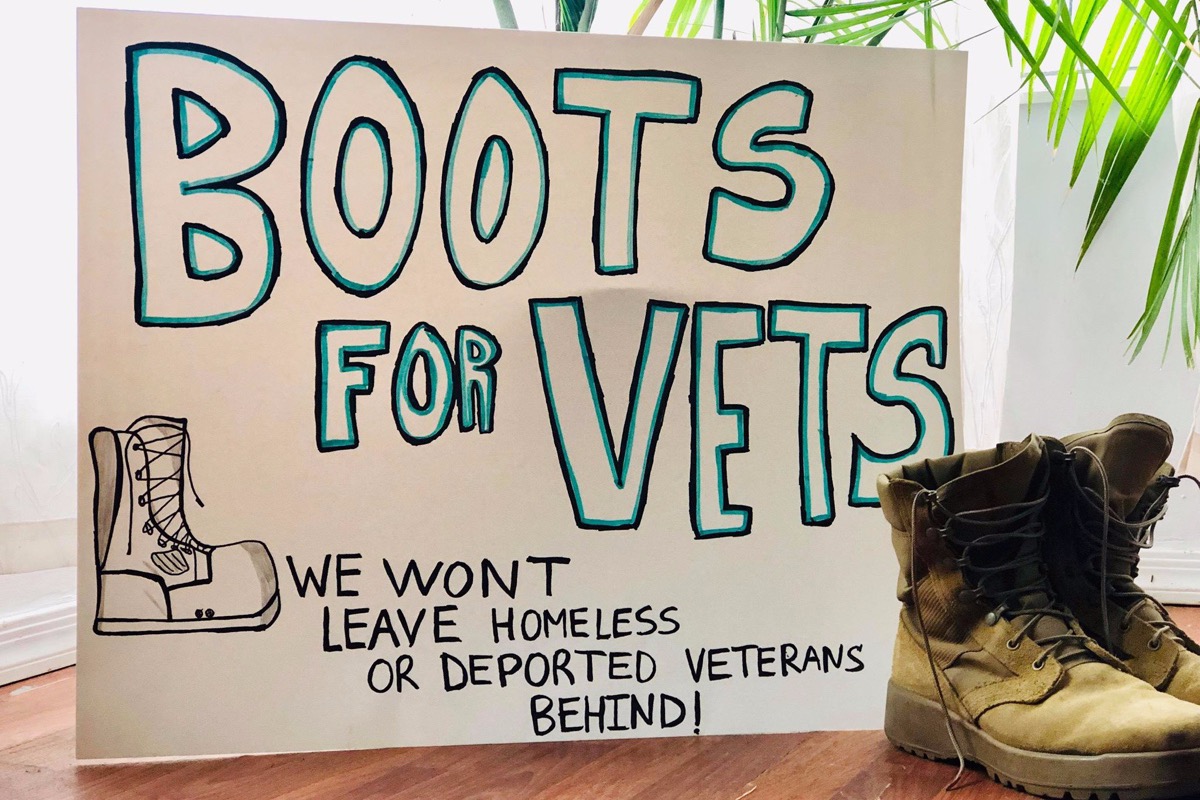 BOOTS
FOR VETS
WE WONT
LEAVE HOMELESS
OR DEPORTED VETERANS
BEHIND!